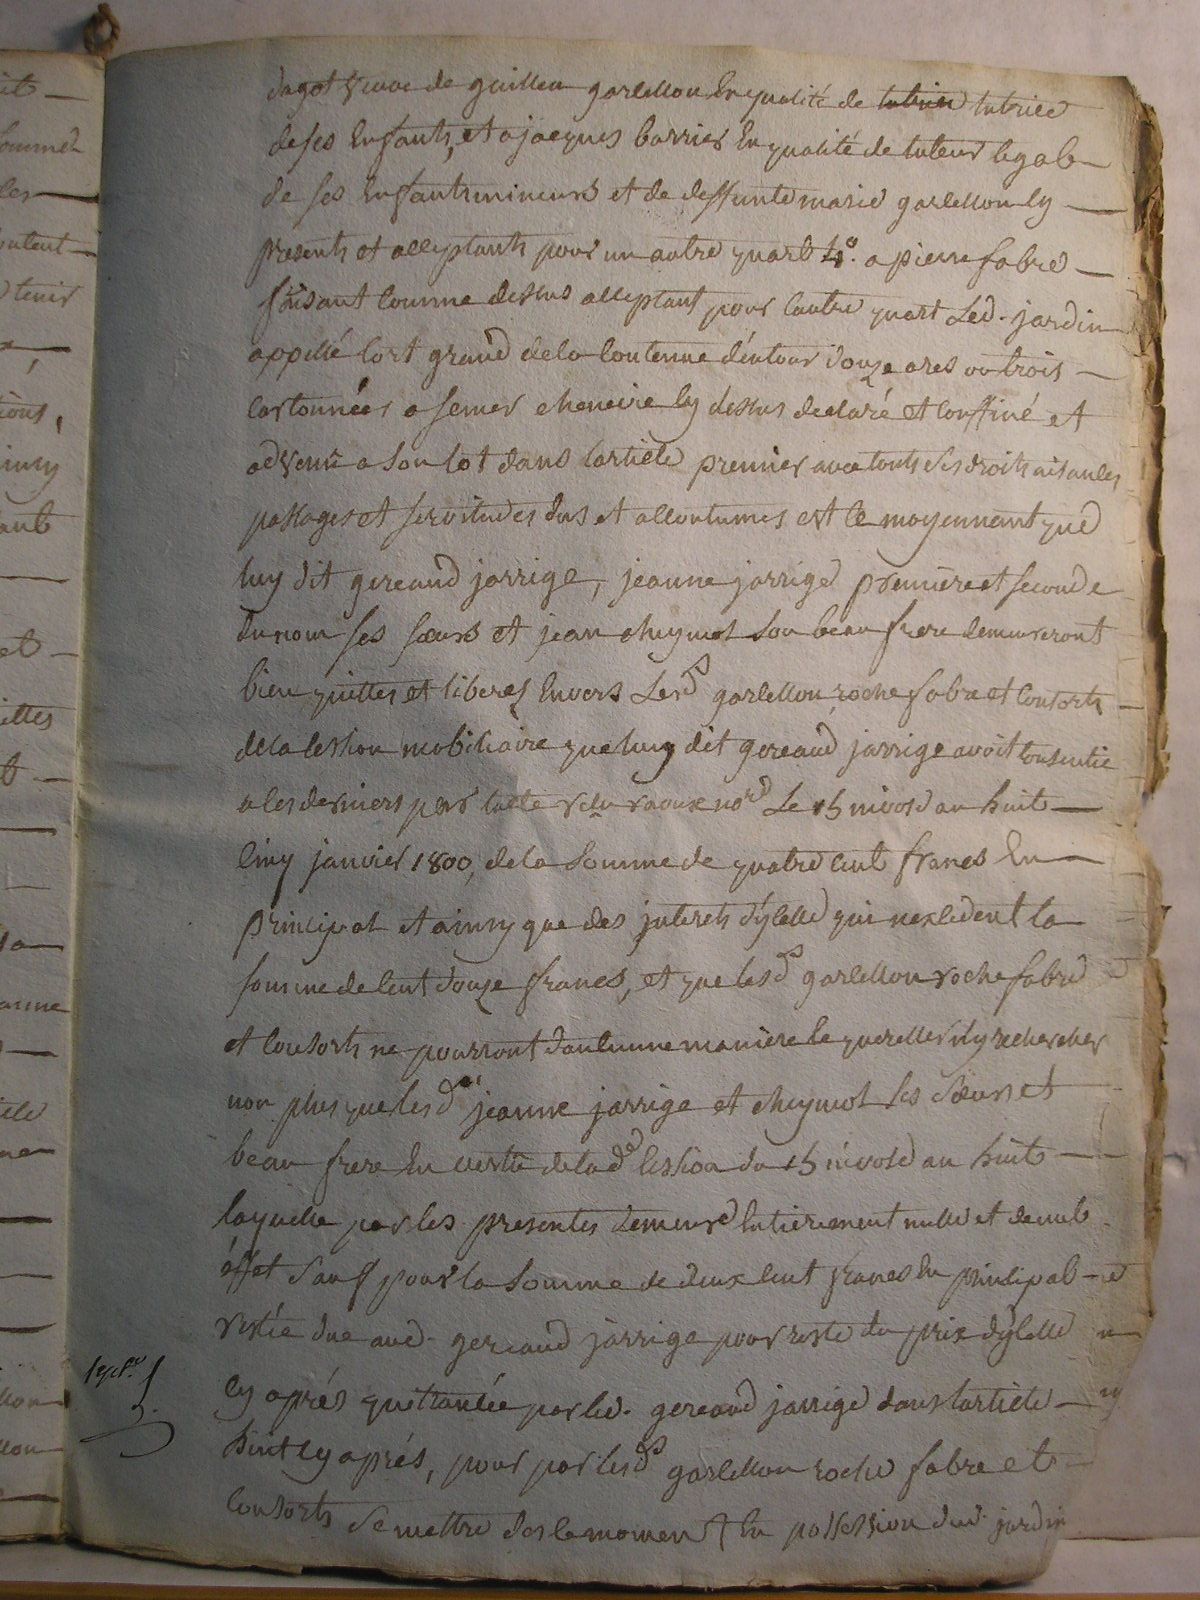 dagot veuve de guillau garcellon en qualité de tutrice tutrice
de ses enfants, et a jacques barrier en qualité de tuteur legal
de ses enfants mineurs et de deffunte marie garcellon cy
presents et acceptants pour un autre quart 4o. a pierre fabre
faisant comme dessus acceptant pour lautre quart Led. jardin
appellé lort grand de la contenue d'entour douze ares ou trois
cartonnées a semer cheneire cy dessus declaré et confiné et
advenu a son lot dans larticle premier avec touts ses droits aisances
passages et servitudes dus et accoutumes est ce moyennant que
luy dit gereaud jarrige, jeanne jarrige premiere et seconde
du nom ses sœurs et jean cheymol son beau frere demeureront
bien quittes et liberez envers Lesds garcellon, roche fabre et consorts
de la cession mobiliaire que luy dit gereaud jarrige avoit consentie
a ces derniers par lacte reçu raoux nore Le 15 nivose an huit
cinq janvier 1800, de la somme de quatre cent francs en
principal et ainsy que des interets d'ycelle qui nexcedent la
somme de cent douze francs, et que lesds garcellon roche fabre
et consorts ne pourront daucune maniere le quereller ny rechercher
non plus que lesds jeanne jarrige et cheymol ses sœurs et
beau frere en vertu de lade cession du 15 nivose an huit
laquelle par les presentes demeure entierement nulle et de nul
éffet sauf pour la somme de deux cent francs en principal
restée due aud. gereaud jarrige pour reste du prix dycelle
cy aprés quittancée par led. gereaud jarrige dans larticle
huit cy aprés, pour par lesds garcellon roche fabre et
consorts se mettre des le moment en possession dud. jardin